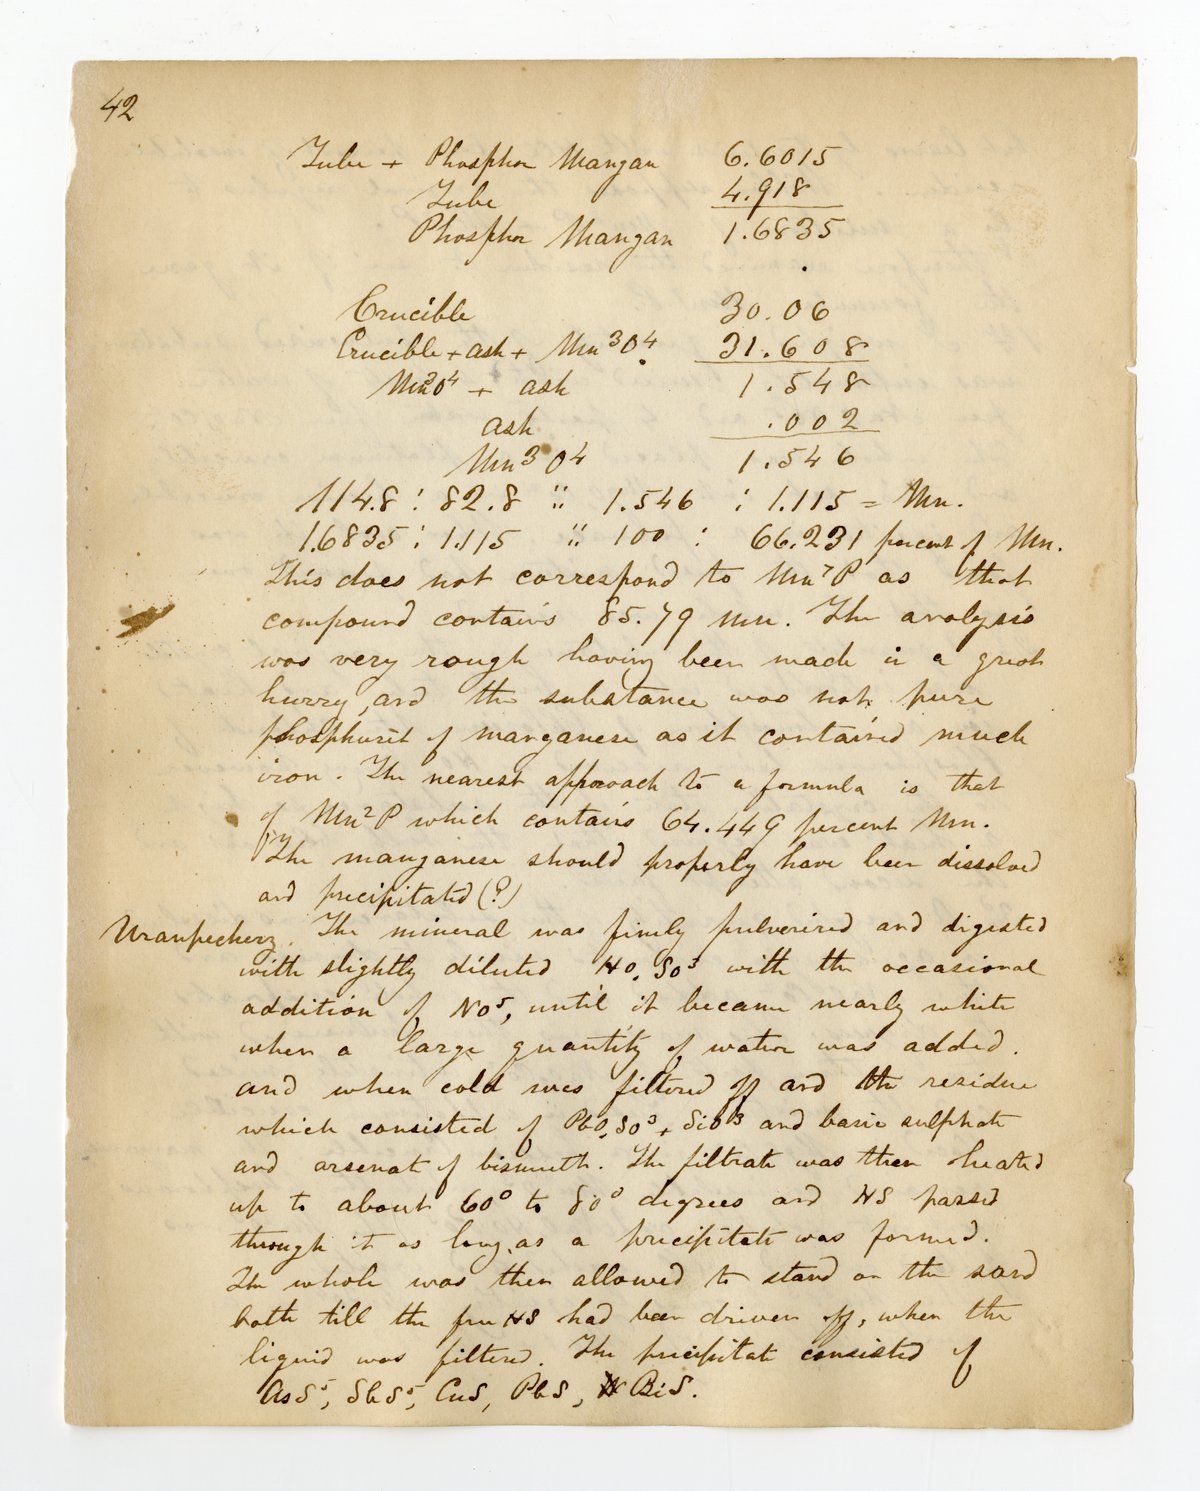 42
Tube + Phosphor Mangan 6.6015
Tube 4.918
Phosphor Mangan 1.6835
Crucible 30.06
Crucible + ash + Mn³O⁴ 31.608
Mn³O⁴ + ash 1.548
ash .002
Mn³O⁴ 1.546
114.8 : 82.8 :: 1.546 : 1.115 = Mn.
1.6835 : 1.115 :: 100 : 66.231 percent of Mn.
This does not correspond to Mn⁷P as that
compound contains 85.79 Mn. The analysis
was very rough having been made in a great
hurry, and the substance was not pure
phosphuret of manganese as it contained much
iron. The nearest approach to a formula is that
of Mn²P which contains 64.449 percent Mn.
The manganese should properly have been dissolved
and precipitated (?)
Uranpecherz. The mineral was finely pulverized and digested
with slightly diluted HO,SO³ with the occasional
addition of NO⁵, until it became nearly white
when a large quantity of water was added.
and when cold was filtered off and the residue
which consisted of PbO,SO³ + SiO³ and basic sulphate
and arsenat of bismuth. The filtrate was then heated
up to about 60° to 80° degrees and HS passed
through it as long as a precipitate was formed.
The whole was then allowed to stand on the sand
bath till the free HS had been driven off, when the
liquid was filtered. The precipitate consisted of
AsS⁵, SbS⁵, CuS, PbS, BiS.